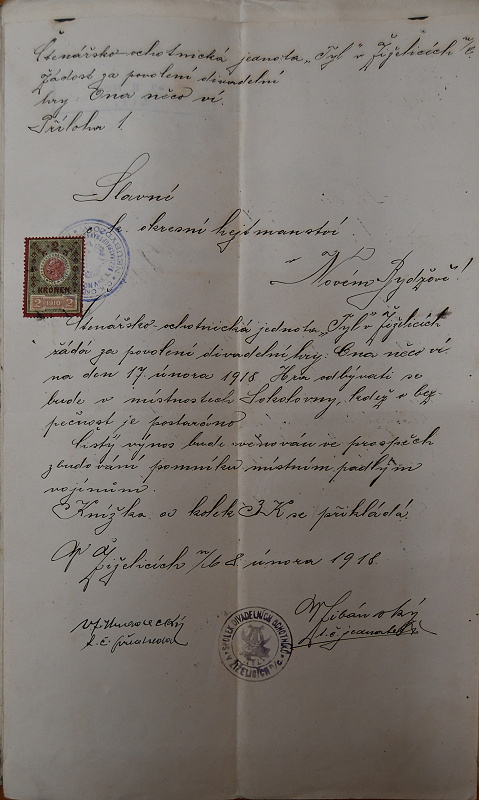 Čtenářsko ochotnická jednota „Tyl" v Žiželicích n/C.
žádost za povolení divadelní
hry: Ona něco ví.
Příloha 1.
Slavní
c. k. okresní hejtmanství
v Novém Bydžově!
2
KRONEN
2 1910 2
Čtenářsko ochotnická jednota „Tyl" v Žiželicích
žádá za povolení divadelní hry: Ona něco ví.
na den 17. února 1918. Hra odbývati se
bude v místnostech Sokolovny, kdež o bez-
pečnost je postaráno.
Čistý výnos bude věnován ve prospěch
zbudování pomníku místním padlým
vojínům.
Knížka a kolek 2K se přikládá.
V Žiželicích n/C 8. února 1918.
t. č. předseda
t. č. jednatel
SPOLEK DIVADELNÍCH OCHOTNÍKŮ
V ŽIŽELICÍCH n/C